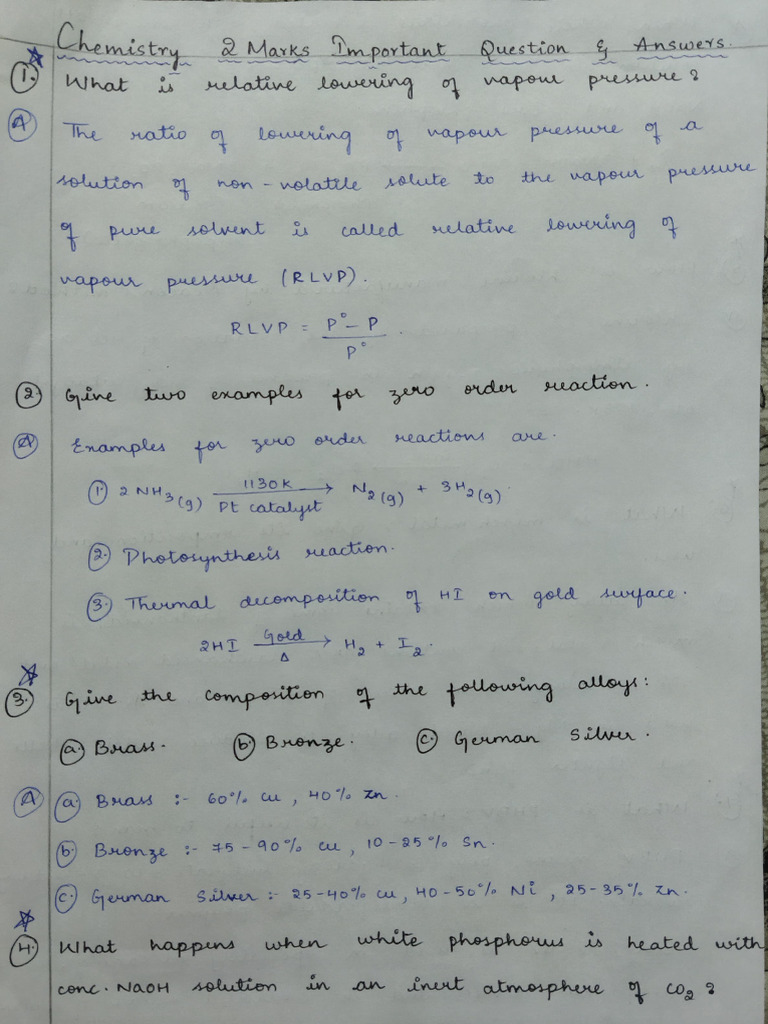 Chemistry 2 Marks Important Question & Answers.
1. What is relative lowering of vapour pressure?
A The ratio of lowering of vapour pressure of a
solution of non-volatile solute to the vapour pressure
of pure solvent is called relative lowering of
vapour pressure (RLVP).
RLVP = P° - P / P° .
2. Give two examples for zero order reaction.
A Examples for zero order reactions are.
1. 2 NH3(g) 1130K → Pt catalyst N2(g) + 3H2(g).
2. Photosynthesis reaction.
3. Thermal decomposition of HI on gold surface.
2HI Gold → Δ H2 + I2.
3. Give the composition of the following alloys:
a. Brass. b. Bronze. c. German Silver.
A a. Brass :- 60% Cu, 40% Zn.
b. Bronze :- 75-90% Cu, 10-25% Sn.
c. German Silver :- 25-40% Cu, 40-50% Ni, 25-35% Zn.
4. What happens when white phosphorus is heated with
conc. NaOH solution in an inert atmosphere of CO2?